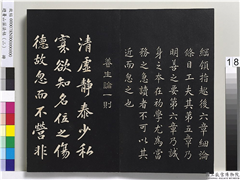 綱領指趣後六章細論
條目工夫其第五章乃
明善之要第六章乃誠
身之本在初學尤為當
務之急讀者不可以其
近而忽之也
養生論一則
清虛靜泰少私
寡欲知名位之傷
德故忽而不營非